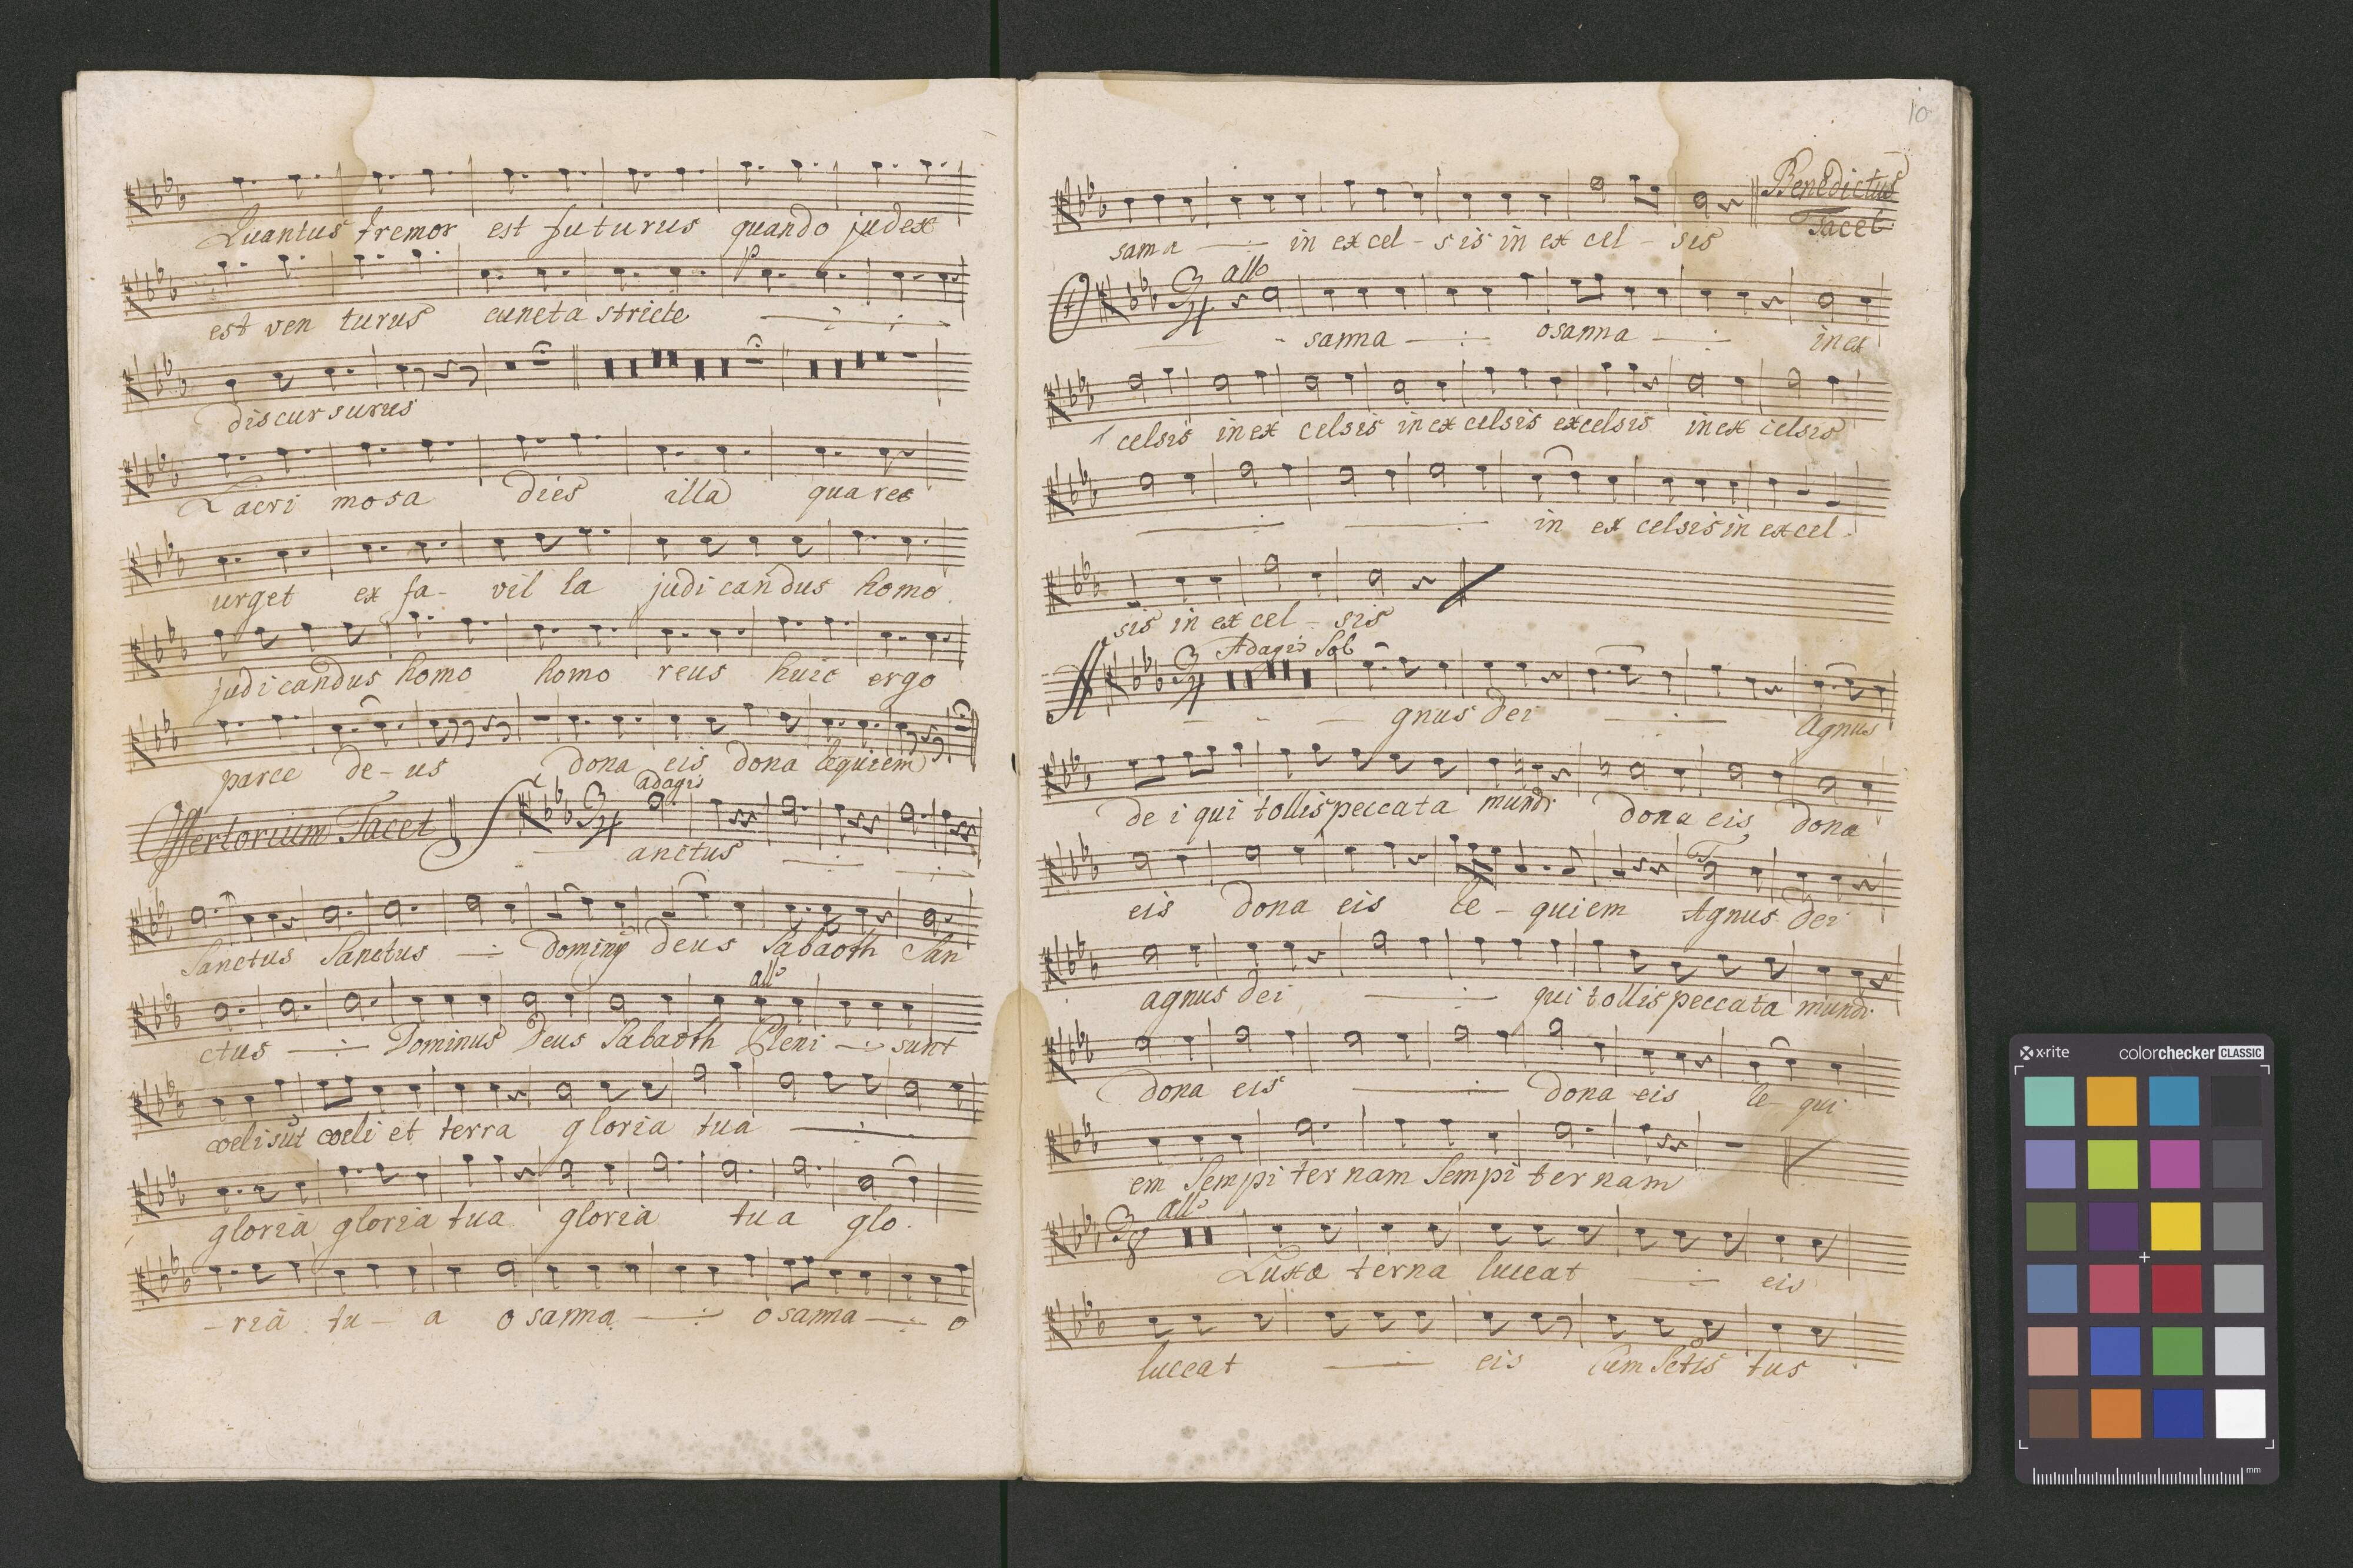 Quantus tremor est futurus quando judex
p
est ven turus cuncta stricte
discursurus
Lacri mosa dies illa qua res
urget ex fa- vil la judi candus homo
judicandus homo homo reus huic ergo
parce de-us dona eis dona requiem
Offertorium Tacet adagio
Sanctus
Sanctus Sanctus deus Sabaoth San
allo
ctus Dominus Deus Sabaoth Pleni sunt
coeli sūt coeli et terra gloria tua
gloria gloria tua gloria tua glo.
-ria tu- a o sanna osanna o
10
Benedictus
Tacet
sanna in excel-sis in ex cel-sis
allo
O sanna osanna in ex
celsis in ex celsis in ex celsis excelsis in ex celsis
in ex celsis in excel.
sis in ex cel-sis
Adagio Sol
Agnus dei Agnus
de i qui tollis peccata mundi dona eis dona
T
eis dona eis re-quiem Agnus Dei
agnus dei qui tollis peccata mundi
dona eis dona eis re- qui
em Sempi ter nam Sempi ter nam
allo
3/8
Lux æ terna luceat eis
luceat eis cum Sctis tus
x-rite colorchecker CLASSIC
mm